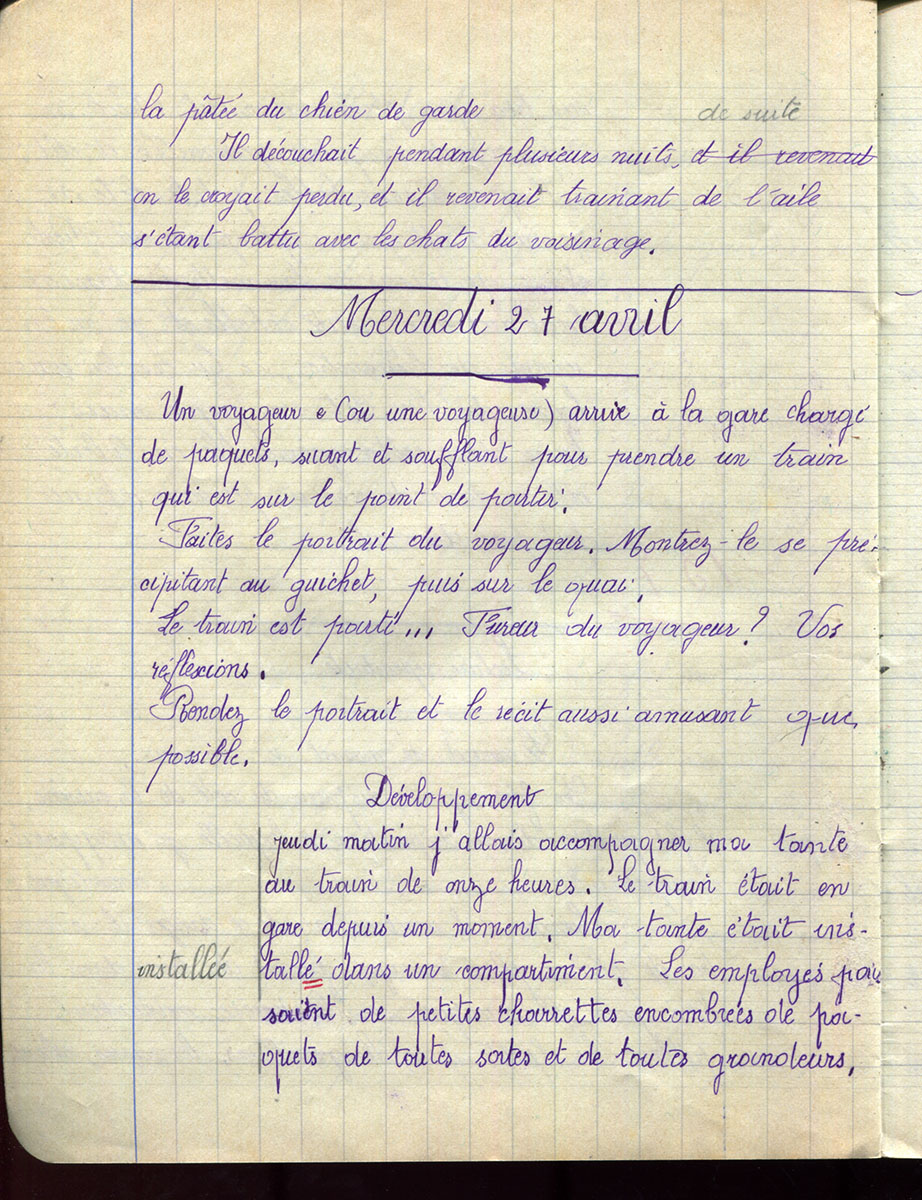 la pâtée du chien de garde de suite
Il découchait pendant plusieurs nuits, et il revenait
on le croyait perdu, et il revenait trainant de l'aile
s'étant battu avec les chats du voisinage.
Mercredi 27 avril
Un voyageur e (ou une voyageuse) arrive à la gare chargé
de paquets, suant et soufflant pour prendre un train
qui est sur le point de partir.
Faites le portrait du voyageur. Montrez-le se pré-
cipitant au guichet, puis sur le quai.
Le train est parti... Fureur du voyageur? Vos
réflexions.
Rendez le portrait et le récit aussi amusant que
possible.
Développement
jeudi matin j'allais accompagner ma tante
au train de onze heures. Le train était en
gare depuis un moment. Ma tante était ins-
installée tallé dans un compartiment. Les employés
de petites charrettes encombrées de pa-
quets de toutes sortes et de toutes grandeurs.